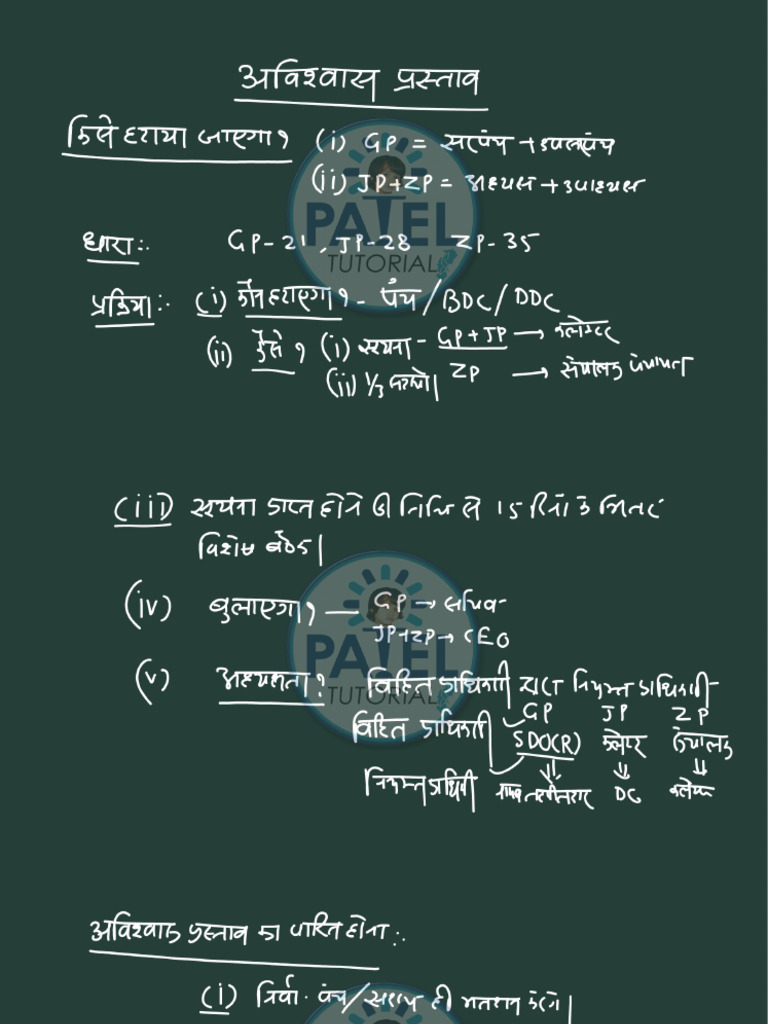 अविश्वास प्रस्ताव
किसे हटाया जाएगा? (i) GP = सरपंच + उपसरपंच
(ii) JP+ZP = अध्यक्ष + उपाध्यक्ष
धारा:- GP-21, JP-28 ZP-35
प्रक्रिया:- (i) कौन हटाएगा? - पंच/BDC/DDC
(ii) कैसे? (i) सूचना - GP+JP → कलेक्टर
ZP → संचालक पंचायत
(ii) 1/3 सदस्यों।
(iii) सूचना प्राप्त होने की तिथि से 15 दिनों के भितर
विशेष बैठक।
(iv) बुलाएगा? — GP → सचिव
JP+ZP → CEO
(v) अध्यक्षता? विहित प्राधिकारी द्वारा नियुक्त प्राधिकारी
GP JP ZP
विहित प्राधिकारी SDO(R) कलेक्टर संचालक
नियुक्त प्राधिकारी तहसीलदार DC कलेक्टर
अविश्वास प्रस्ताव का पारित होना:-
(i) निर्वा. पंच/सदस्य ही मतदान करेंगे।
PATEL
TUTORIAL
PATEL
TUTORIAL